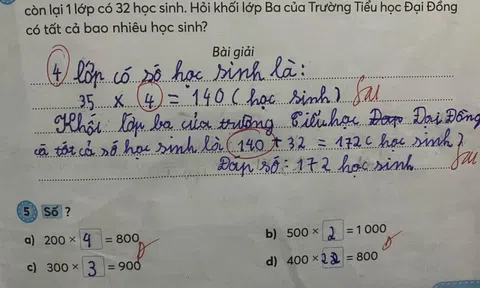 còn lại 1 lớp có 32 học sinh. Hỏi khối lớp Ba của Trường Tiểu học Đại Đồng
có tất cả bao nhiêu học sinh?
Bài giải
4 lớp có số học sinh là:
35 x 4 = 140 (học sinh) Sai
Khối lớp ba của trường Tiểu học Đap Đại Đồng
có tất cả số học sinh là 140 + 32 = 172 (học sinh)
Đáp số: 172 học sinh Sai
5 Số ?
a) 200 × 4 = 800 b) 500 × 2 = 1 000
c) 300 × 3 = 900 d) 400 × 2 = 800